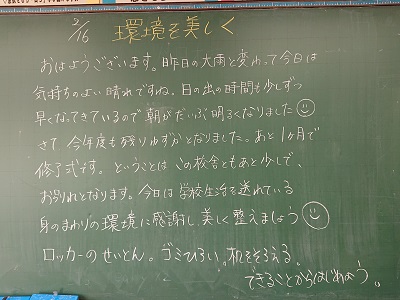 2/16 環境を美しく
おはようございます。昨日の大雨と変わって今日は
気持ちのよい晴れですね。日の出の時間も少しずつ
早くなってきているので朝がだいぶ明るくなりました
さて、今年度も残りわずかとなりました。あと1ヶ月で
修了式です。ということはこの校舎ともあと少しで、
お別れとなります。今日は学校生活を送れている
身のまわりの環境に感謝し、美しく整えましょう
ロッカーのせいとん。ゴミひろい。机をそろえる。
できることからはじめよう。